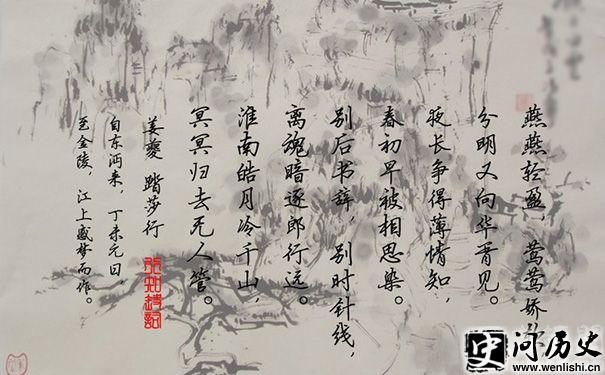 燕燕轻盈，莺莺娇
分明又向华胥见。
夜长争得薄情知，
春初早被相思染。
别后书辞，别时针线，
离魂暗逐郎行远。
淮南皓月冷千山，
冥冥归去无人管。
姜夔 踏莎行
自东沔来，丁未元日，
至金陵，江上感梦而作。
史 问历史
www.wenlishi.cn